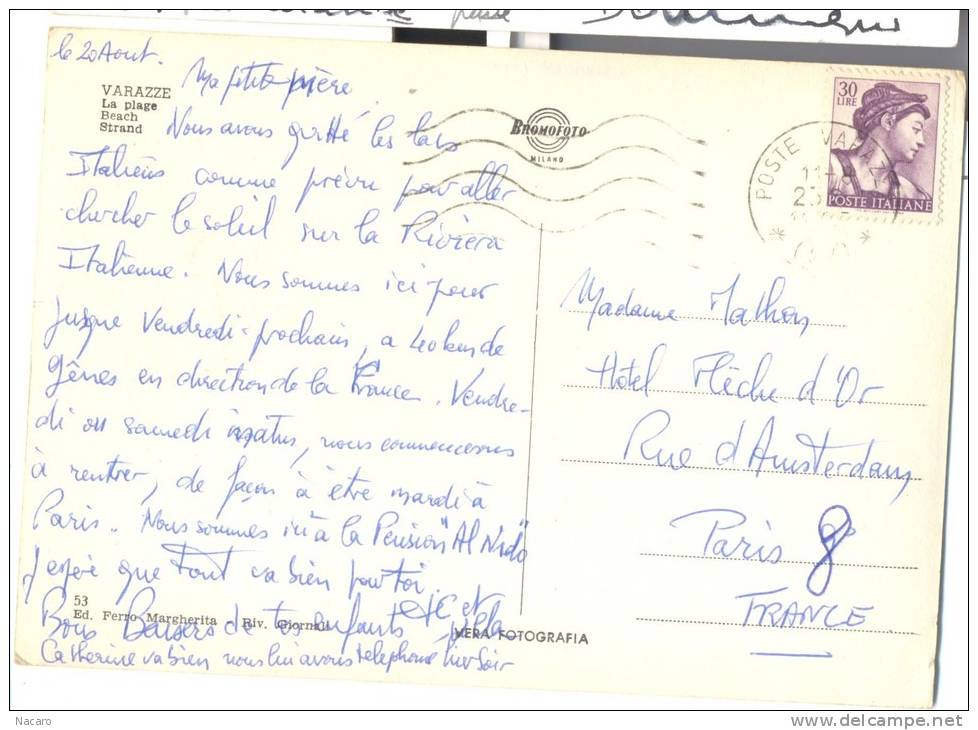 le 20 Aout.
VARAZZE
La plage
Beach
Strand
Ma petite mère,
Nous avons quitté les lacs
Italiens comme prévu pour aller
chercher le soleil sur la Riviera
Italienne. Nous sommes ici pour
jusque vendredi-prochain, a 40 km de
Gênes en direction de la France. Vendre-
di ou samedi matin, nous commencerons
à rentrer, de façon à être mardi à
Paris. Nous sommes ici à la Pension "Al Nido"
J'espère que tout va bien pour toi.
Bons Baisers de tes enfants
Catherine va bien nous lui avons telephoné hier soir
53
Ed. Ferro Margherita - Riv. Giornali
VERA FOTOGRAFIA
BROMOFOTO
MILANO
30
LIRE
POSTE ITALIANE
POSTE VARAZZE
Madame Mathon
Hôtel Flèche d'Or
Rue d'Amsterdam
Paris 8e
FRANCE
Nacaro
delcampe.net